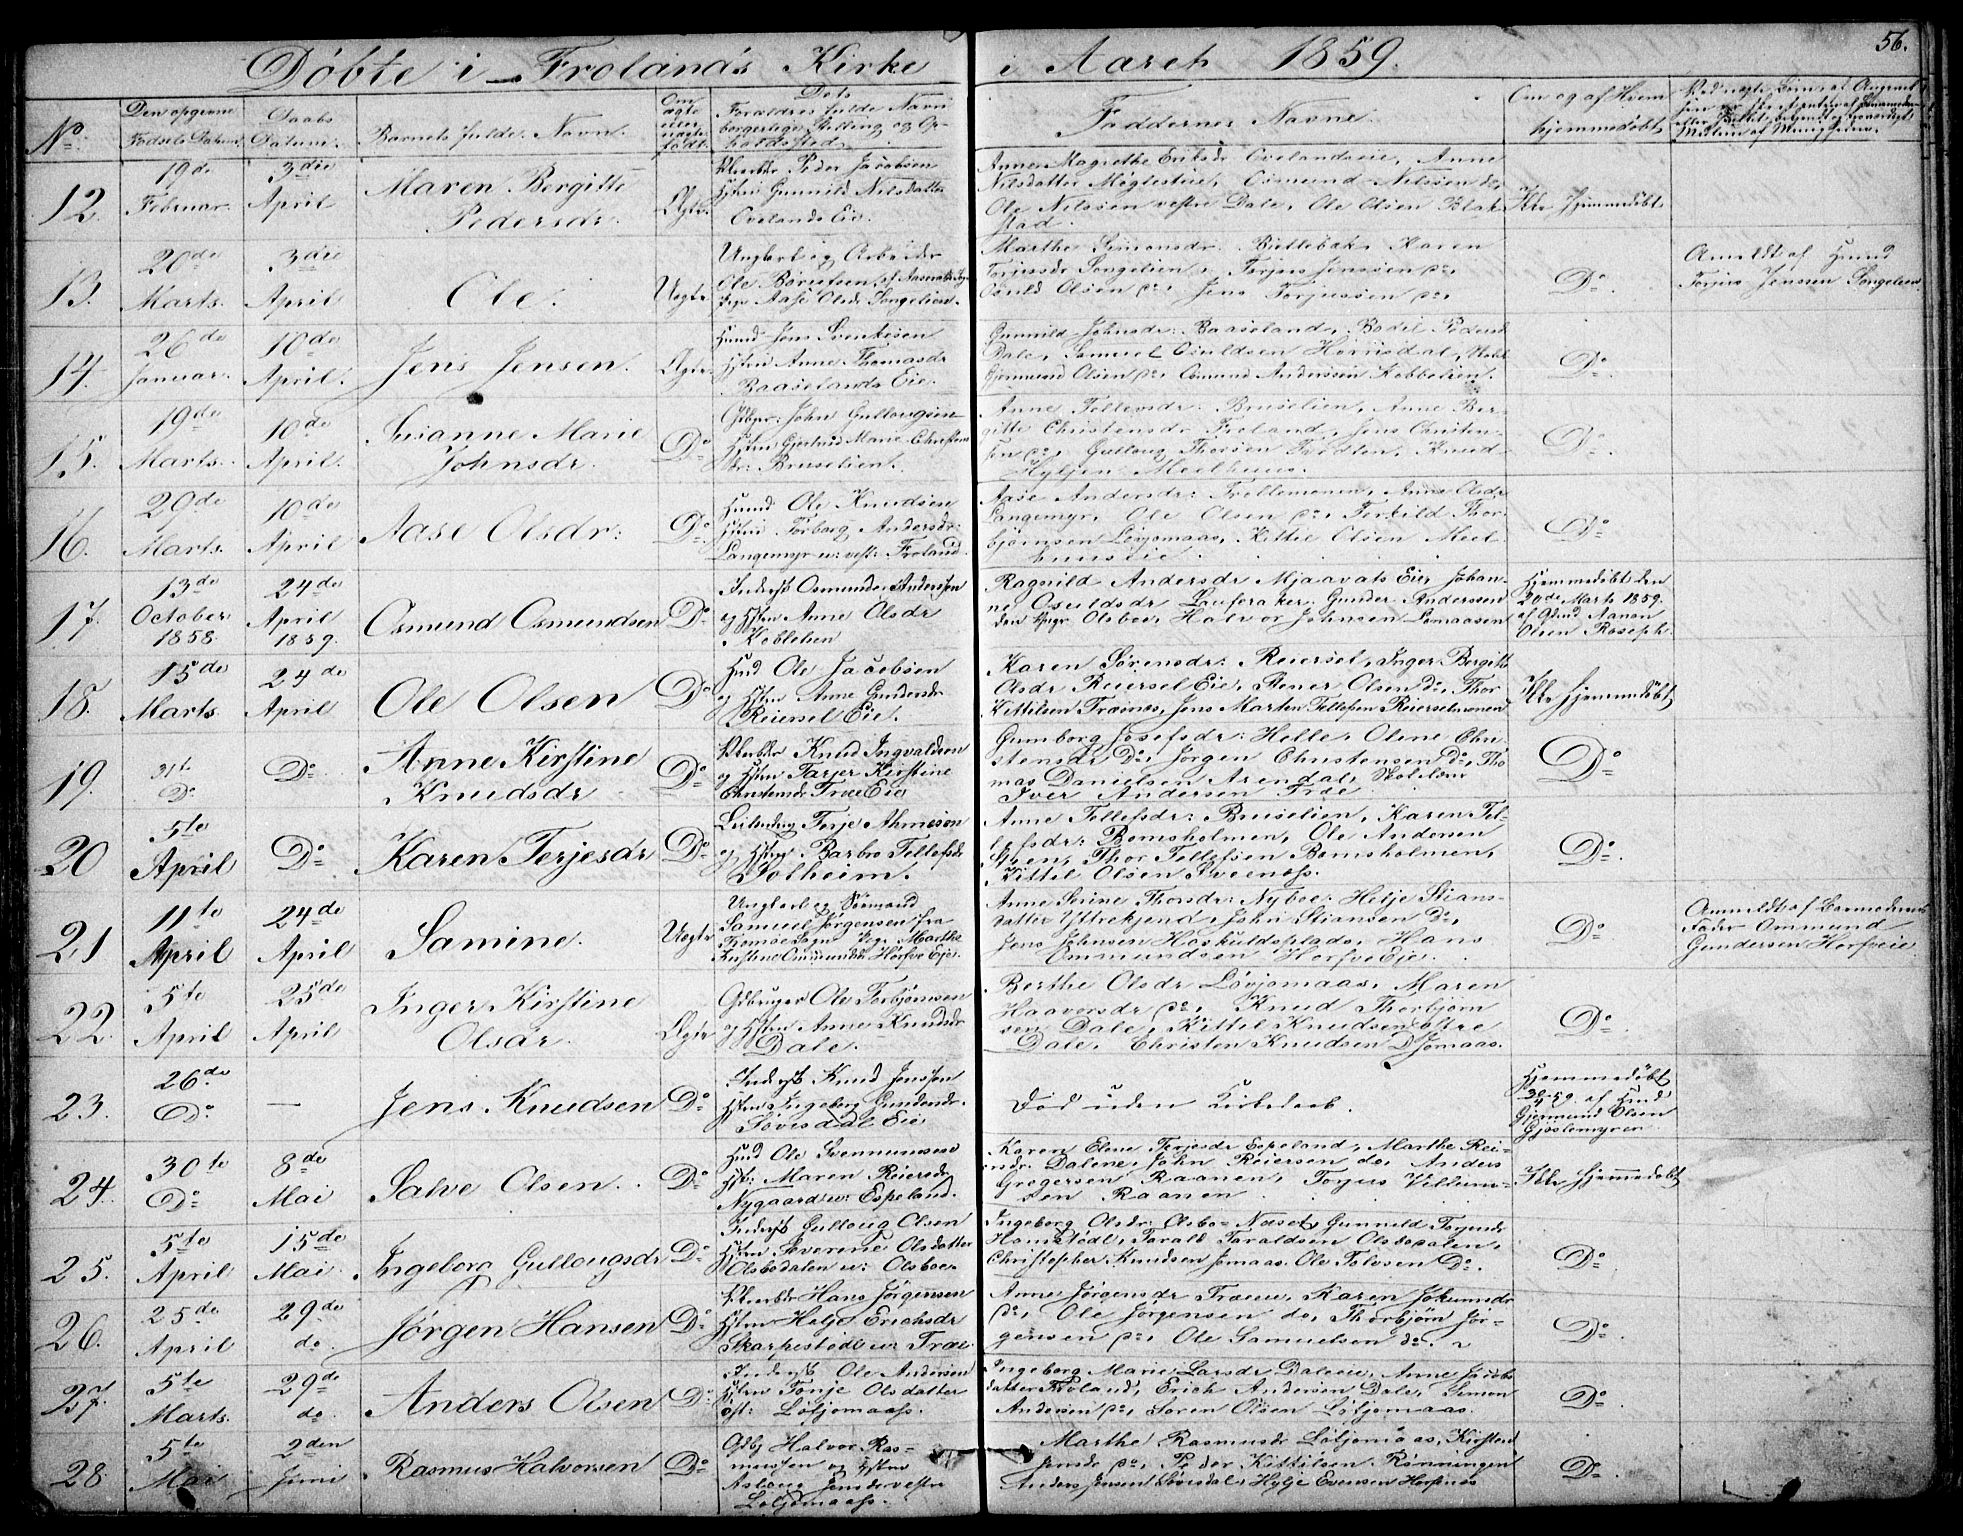 56.
Døbte i Frolands Kirke i Aaret 1859.
No. Den opgivne Fødsels Datum. Daabs Datum. Barnets fulde Navn. Om ægte eller uægte født. Dets Forældres fulde Navn borgerlige Stilling og Opholdssted. Faddernes Navne. Om og af Hvem hjemmedøbt.
12. 19de Februar. 3die April Maren Bergitte Pedersdr. Ægte.
Peder Jacobsen
Hstru Gunnild Nilsdatter
Ovelands Eie.
Anne Magrethe Eriksdr Ovelandseie, Anne
Nilsdatter Møglestue, Osmund Nilssen
Ole Nilssen vestre Dale, Ole Olsen Blak-
stad.
Ikke hjemmedøbt
13. 20de Marts. 3die April Ole. Uægte
Ungkarl og Arbeider
Ole
Pige Aase Olsdr Songelien.
Marthe Simonsdr. Karen
Torjusdr Songelien, Torjus Jensen do,
Osuld Olsen do, Jens Torjussen do,
Do.
Anmeldt af Hmnd
Torjus Jensen Songelien
14. 26de Januar. 10de April. Jens Jensen. Ægte.
Hmnd Jens Svenksen
Hstru Anne Thomasdr
Baaselands Eie.
Gunnild Johnsdr: Baaseland, Bodil Pedersdr
Dale, Samuel Osuldsen
Gjermund Olsen do, Osmund Anderssen Kobbelien.
Do
15. 19de Marts. 10de April. Susanne Marie Johnsdr. Do
Gdbgr: John Gullougsen
Hstru Gjertrud Marie Christens-
dr: Bruselien.
Anne Tellefsdr: Bruselien, Anne Ber-
gitte Christensdr Froland, Jens Christen-
sen do, Gulloug Thorsen Tvedten, Knud
Mælhuus.
Do.
16. 29de Marts. 10de April Aase Olsdr: Do
Hmnd Ole Knudsen
Hstru Torborg Andersdr:
Langemyr u: vest: Froland.
Aase Andersdr: Trellemonen, Anne Olsdr
Langemyr, Ole Olsen do, Terkild Thor-
bjørnsen Løvjomaas, Kittil Olsen Mæl-
huuseie.
Do
17. 13de October 1858 24de April 1859. Osmund Osmundsen Do
Inderst Osmund Anderssen
og Hstru Anne Olsdr
Kobbelien
Ragnild Andersdr Mjaavats Eie, Johan-
ne Osuldsdr Lauveraker, Gunder Anderssen
den yngr Olsboe, Halvor Johnsen Lomaasen
Hjemmedøbt den
20de Marts 1859.
af Gdmd Aanon
Olsen Roseph.
18. 15de Marts 24de April Ole Olsen Do
Hmd Ole Jacobsen
og Hstru Anne Gundersdr
Reiersel Eie.
Karen Sørensdr: Reiersel, Inger Bergitte
Olsdr Reiersel Eie, Stener Olsen do, Thor
Kittilsen Frænæs, Jens Marten Tellefsen Reierselmonen
Ikke hjemmedøbt
19. 31te Do Do Anne Kirstine Knudsdr Do
Knud Ingvaldsen
og Hstru Tarjer Kirstine
Christensdr Træe Eie
Gumborg Josefsdr: Helle, Olene Chri-
stensdr do, Jørgen Christensen do, Tho-
mas Danielsen Arendal, Skolelærer
Iver Andersen Træe.
Do
20 5te April Do Karen Terjesdr Do
Leilending Terje
og Hstru Barbro Tellefsdr
Solheim.
Anne Tellefsdr: Bruselien, Karen Tel-
lefsdr: Bomsholmen, Ole Andersen
Steen, Thor Tellefsen Bomsholmen,
Kittil Olsen Sveenæss.
Do.
21 11te April 24de April Samine. Uægte
Ungkarl og Sømand
Samuel Jørgensen fra
Tromøe Sogn Pige Marthe
Kirstine Ommundsdr Horfve Eje.
Anne Serine Thorsdr: Nyboe, Helje Stians-
datter Yttrekjend, John Stiansen Do,
Jens Johnsen Høskuldsplads, Hans
Ommundsen Horfve Eje.
Do
Anmeldt af Barnemoderens
Fader Ommund
Gundersen Horfveie
22. 5te April 25de April Inger Kirstine Olsdr. Ægte
Gdbruger Ole Torbjørnsen
og Hstru Anne Knudsdr
Dale.
Berthe Olsdr Løvjomaas, Maren
Haavorsdr do, Knud Thorbjørn-
sen Dale, Kittel Knudsen østre
Dale, Christen Knudsen Djomaas.
Do.
23. 26de Do. — Jens Knudsen Do
Inderst Knud Jenssen
Hstru Ingeborg Gundersdr.
Løvisdal Eie
Død uden Kirkedaab.
Hjemmedøbt
30/4 59. af Hmd
Gjermund Olsen
Gjøslemyren
24. 30te Do 8de Mai Salve Olsen. Do
Hmd Ole Svenumsen
Hst: Maren Reiersdr
Nygaard u: Espeland.
Karen Elene Terjesdr Espeland, Marthe Rei-
ersdr Dalene, John Reiersen do, Anders
Gregersen Raanen, Torjus Villum-
sen Raanen
Ikke hjemmedøbt
25. 5te April 15de Mai. Ingeborg Gullougsdr Do
Inderst Gulloug Olsen
Hstru Severine Olsdatter
Olsbodalen u: Olsboe
Ingeborg Olsdr: Olsbo-Næset, Gunnild Torjusdr
Homstødl, Tarald Taraldsen Olsbodalen,
Christopher Knudsen Jomaas. Ole Tolvsen Do.
Do.
26. 25de April 29de do. Jørgen Hansen Do
Hans Jørgensen
Hstru Helje Erichsdr
Skarpestødl u: Træe.
Anne Jørgensdr Træeie, Karen Jokumsdr
do, Ole Jørgensen do, Thorbjørn Jør-
gensen do, Ole Samuelsen do.
Do.
27. 5te Marts. 29de do. Anders Olsen Do.
Inderst Ole Andersen
Hstru Tonje Olsdatter
øst: Løljomaass.
Ingeborg Marie Larsdr Daleeie, Anne Jacobs-
datter Froland, Erich Andersen Dale, Simon
Andersen do, Søren Olsen Løljomaas.
Do.
28. 5te Mai 2den Juni Rasmus Halvorsen Do
Gdbg Halvor Ras-
mussen og Hstru
Aslaug Jensdr vestre
Løljomaass.
Marthe Rasmusdr Løljomaas, Kirsten
Jensdr do, Peder Kittilsen Rønningen
Anders Jensen Løvisdal, Hylje Evensen Horfnæs
Do.